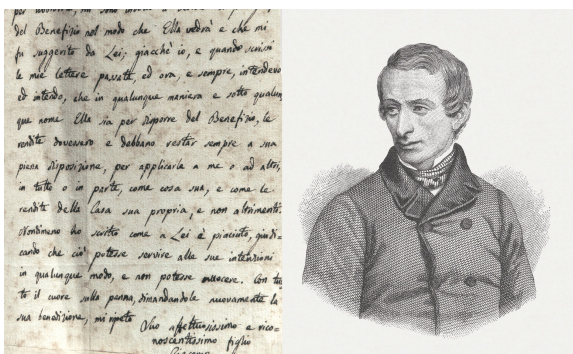 del Benefizio nel modo che Ella vedrà e che mi
fu suggerito da Lei; giacchè io, e quando scrissi
le mie lettere passate, ed ora, e sempre, intendevo
ed intendo, che in qualunque maniera e sotto qualun
que nome Ella sia per disporre del Benefizio, le
rendite dovessero e debbano restar sempre a sua
piena disposizione, per applicarle a me o ad altri,
in tutto o in parte, come cosa sua, e come le
rendite della Casa sua propria, e non altrimenti.
Nondimeno ho scritto come a Lei è piaciuto, giudi-
cando che ciò potesse servire alle sue intenzioni
in qualunque modo, e non potesse nuocere. Con tut
to il cuore sulla penna, dimandandole nuovamente la
sua benedizione, mi ripeto
Suo affettuosissimo e rico-
noscentissimo figlio
Giacomo